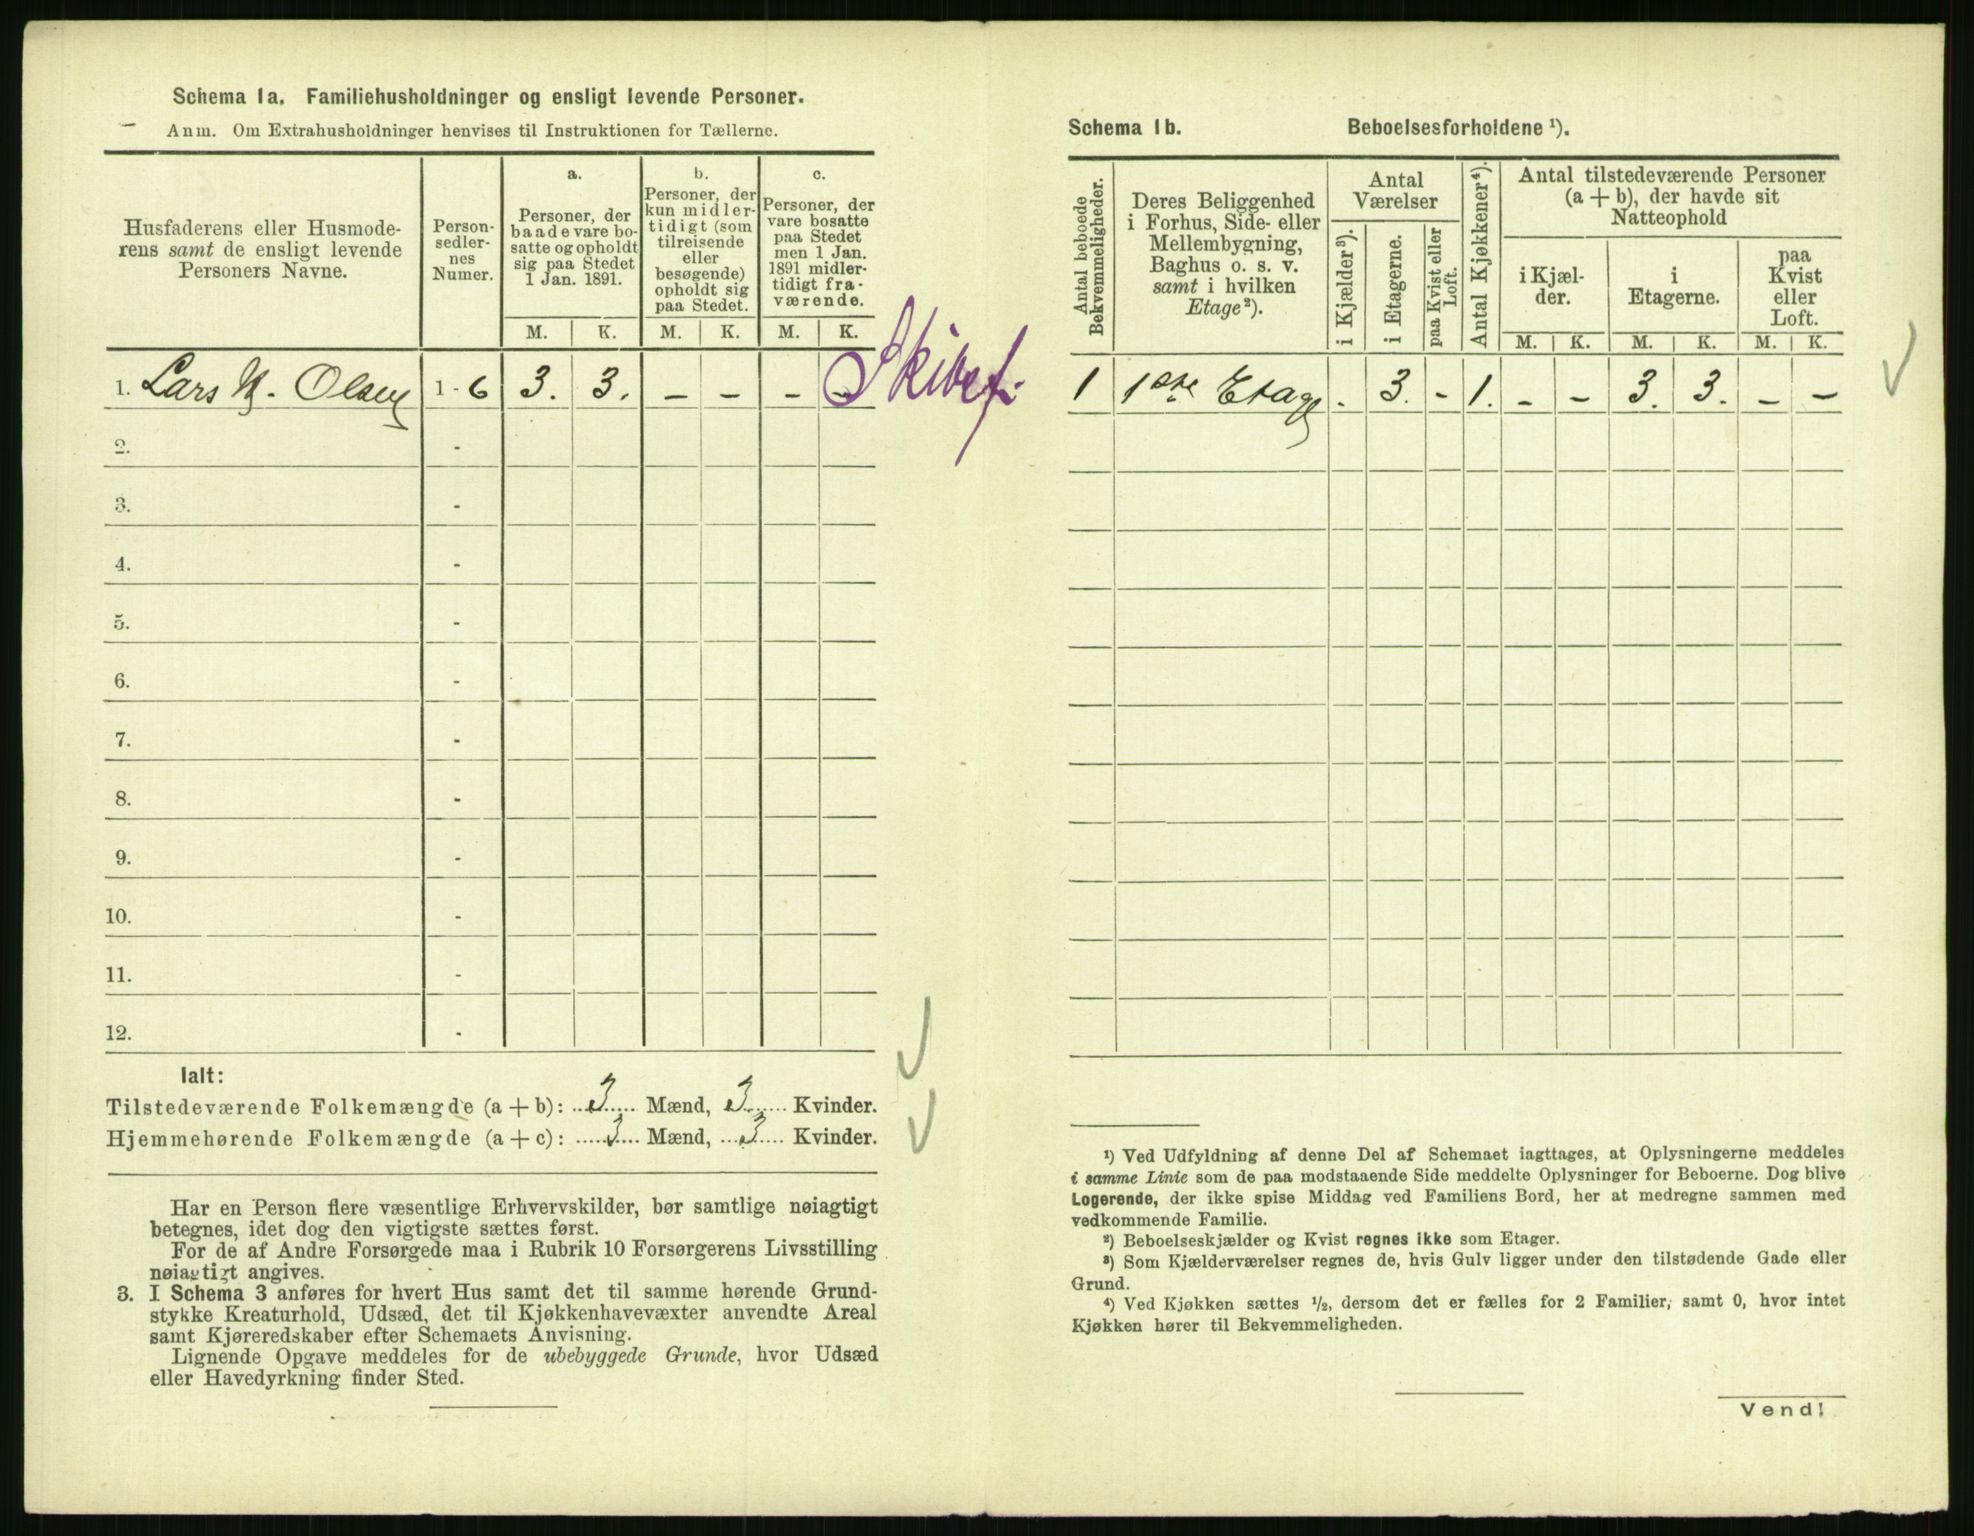 Schema 1a. Familiehusholdninger og ensligt levende Personer.
Anm. Om Extrahusholdninger henvises til Instruktionen for Tællerne.
Husfaderens eller Husmoderens samt de ensligt levende Personers Navne.
Person-
sedler-
nes
Numer.
a.
Personer, der
baade vare bo-
satte og opholdt
sig paa Stedet
1 Jan. 1891.
b.
Personer, der
kun midler-
tidigt (som
tilreisende
eller
besøgende)
opholdt sig
paa Stedet.
c.
Personer, der
vare bosatte
paa Stedet
men 1 Jan.
1891 midler-
tidigt fra-
værende.
M. K. M. K. M. K.
1. Lars Olsen 1 - 6 3. 3. - - - -
2. -
3. -
4. -
5. -
6. -
7. -
8. -
9. -
10. -
11. -
12. -
Ialt:
Tilstedeværende Folkemængde (a + b): 3 Mænd, 3 Kvinder.
Hjemmehørende Folkemængde (a + c): 3 Mænd, 3 Kvinder.
Har en Person flere væsentlige Erhvervskilder, bør samtlige nøiagtigt
betegnes, idet dog den vigtigste sættes først.
For de af Andre Forsørgede maa i Rubrik 10 Forsørgerens Livsstilling
nøiagtigt angives.
3. I Schema 3 anføres for hvert Hus samt det til samme hørende Grund-
stykke Kreaturhold, Udsæd, det til Kjøkkenhavevæxter anvendte Areal
samt Kjøreredskaber efter Schemaets Anvisning.
Lignende Opgave meddeles for de ubebyggede Grunde, hvor Udsæd
eller Havedyrkning finder Sted.
Schema 1b. Beboelsesforholdene ¹).
Antal beboede
Bekvemmeligheder.
Deres Beliggenhed
i Forhus, Side- eller
Mellembygning,
Baghus o. s. v.
samt i hvilken
Etage²).
Antal
Værelser
i Kjælder³).
i Etagerne.
paa Kvist eller
Loft.
Antal Kjøkkener⁴).
Antal tilstedeværende Personer
(a + b), der havde sit
Natteophold
i Kjæl-
der.
i
Etagerne.
paa
Kvist
eller
Loft.
M. K. M. K. M. K.
1 1ste Etage - 3. - 1. - - 3. 3. - -
¹) Ved Udfyldning af denne Del af Schemaet iagttages, at Oplysningerne meddeles
i samme Linie som de paa modstaaende Side meddelte Oplysninger for Beboerne. Dog blive
Logerende, der ikke spise Middag ved Familiens Bord, her at medregne sammen med
vedkommende Familie.
²) Beboelseskjælder og Kvist regnes ikke som Etager.
³) Som Kjælderværelser regnes de, hvis Gulv ligger under den tilstødende Gade eller
Grund.
⁴) Ved Kjøkken sættes ½, dersom det er fælles for 2 Familier, samt 0, hvor intet
Kjøkken hører til Bekvemmeligheden.
Vend!